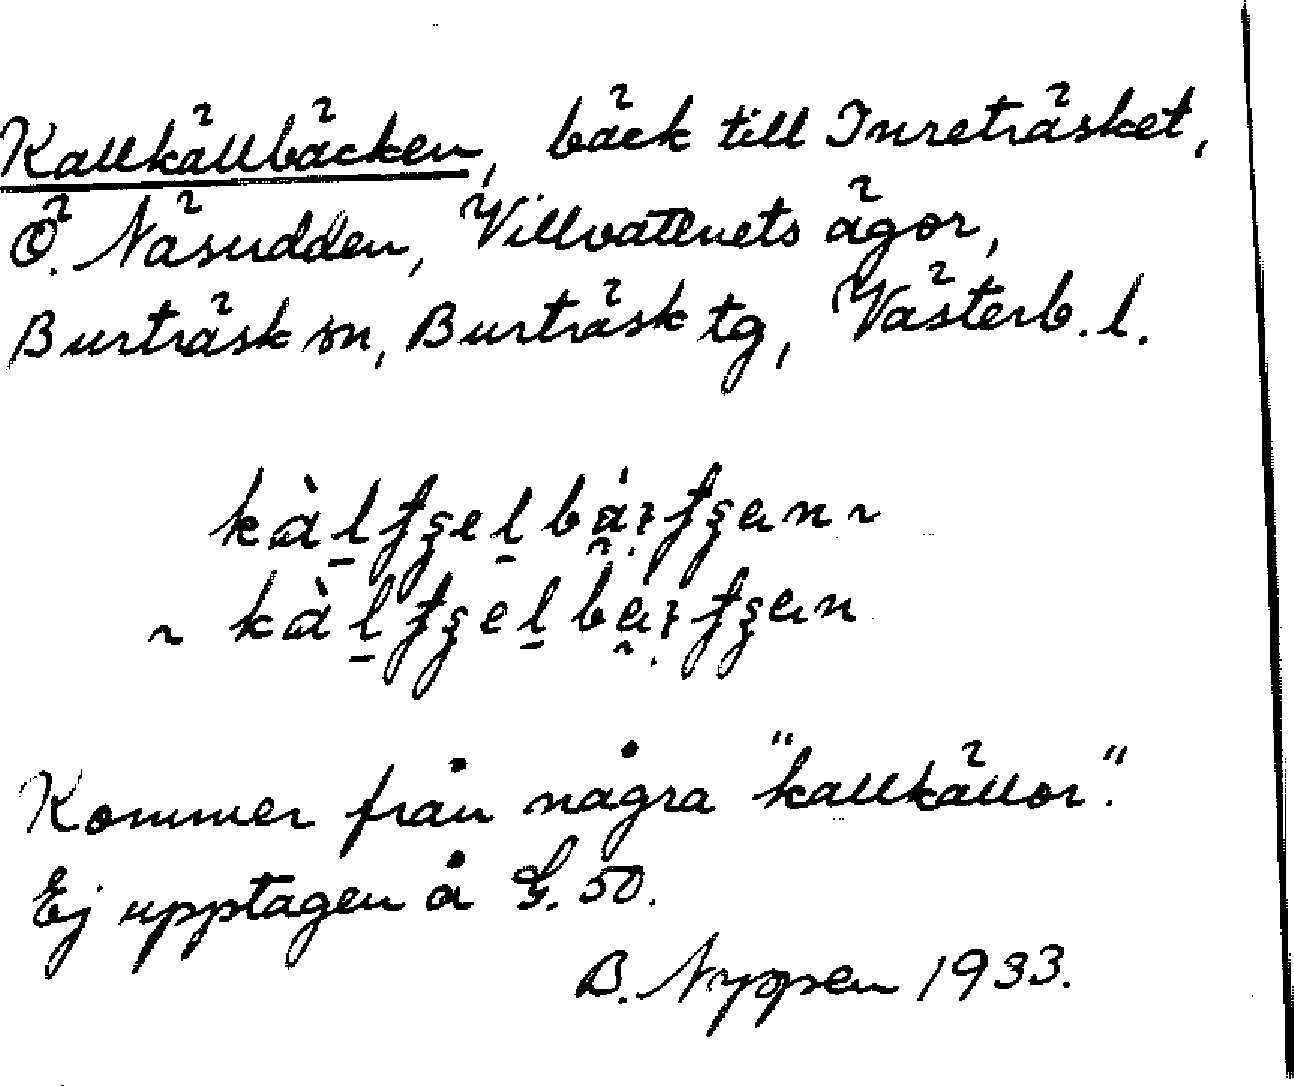 Kallkällbäcken, bäck till Inreträsket,
Ö. Näsudden, Villvattnets ägor,
Burträsk sn, Burträsk tg, Västerb. l.
Kommer från några "kallkällor".
Ej upptagen å G. 50.
B. Nyppen 1933.